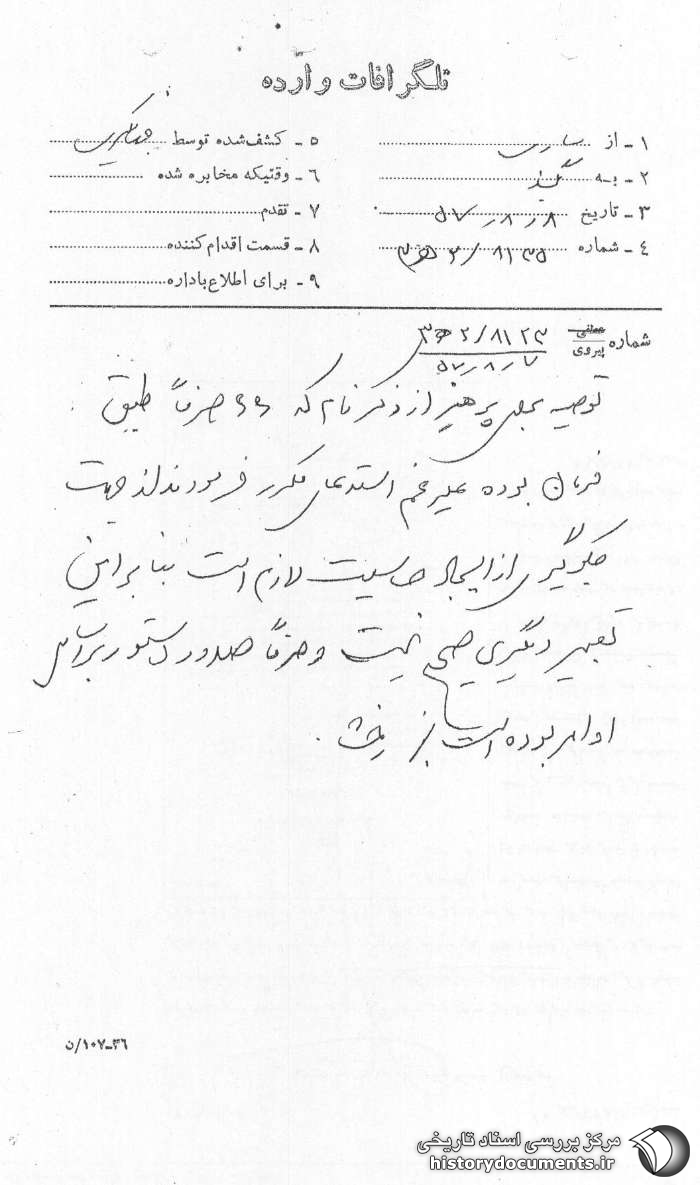 تلگرافات وارده
۱ - از ساری
۲ - به گنبد
۳ - تاریخ ۵۷/۸/۸
۴ - شماره ۸۱۳۵/۲ ﻫ ۳
۵ - کشف شده توسط جهانگیری
۶ - وقتیکه مخابره شده
۷ - تقدم
۸ - قسمت اقدام کننده
۹ - برای اطلاع باداره
شماره پیروی ۸۱۲۳/۲ ﻫ ۳
۵۷/۸/۷
توصیه بعلی پرهیز از ذکر نام که صرفاً طبق
فرمان بوده علیرغم استدعای مکرر فرمودند لذا جهت
جلوگیری از ایجاد حساسیت لازم است بنابراین
تعبیر دیگری صحیح نیست و صرفاً صدور دستور براساس
اوامر بوده است
۱۰۷-۳۶/ن
مرکز بررسی اسناد تاریخی
historydocuments.ir